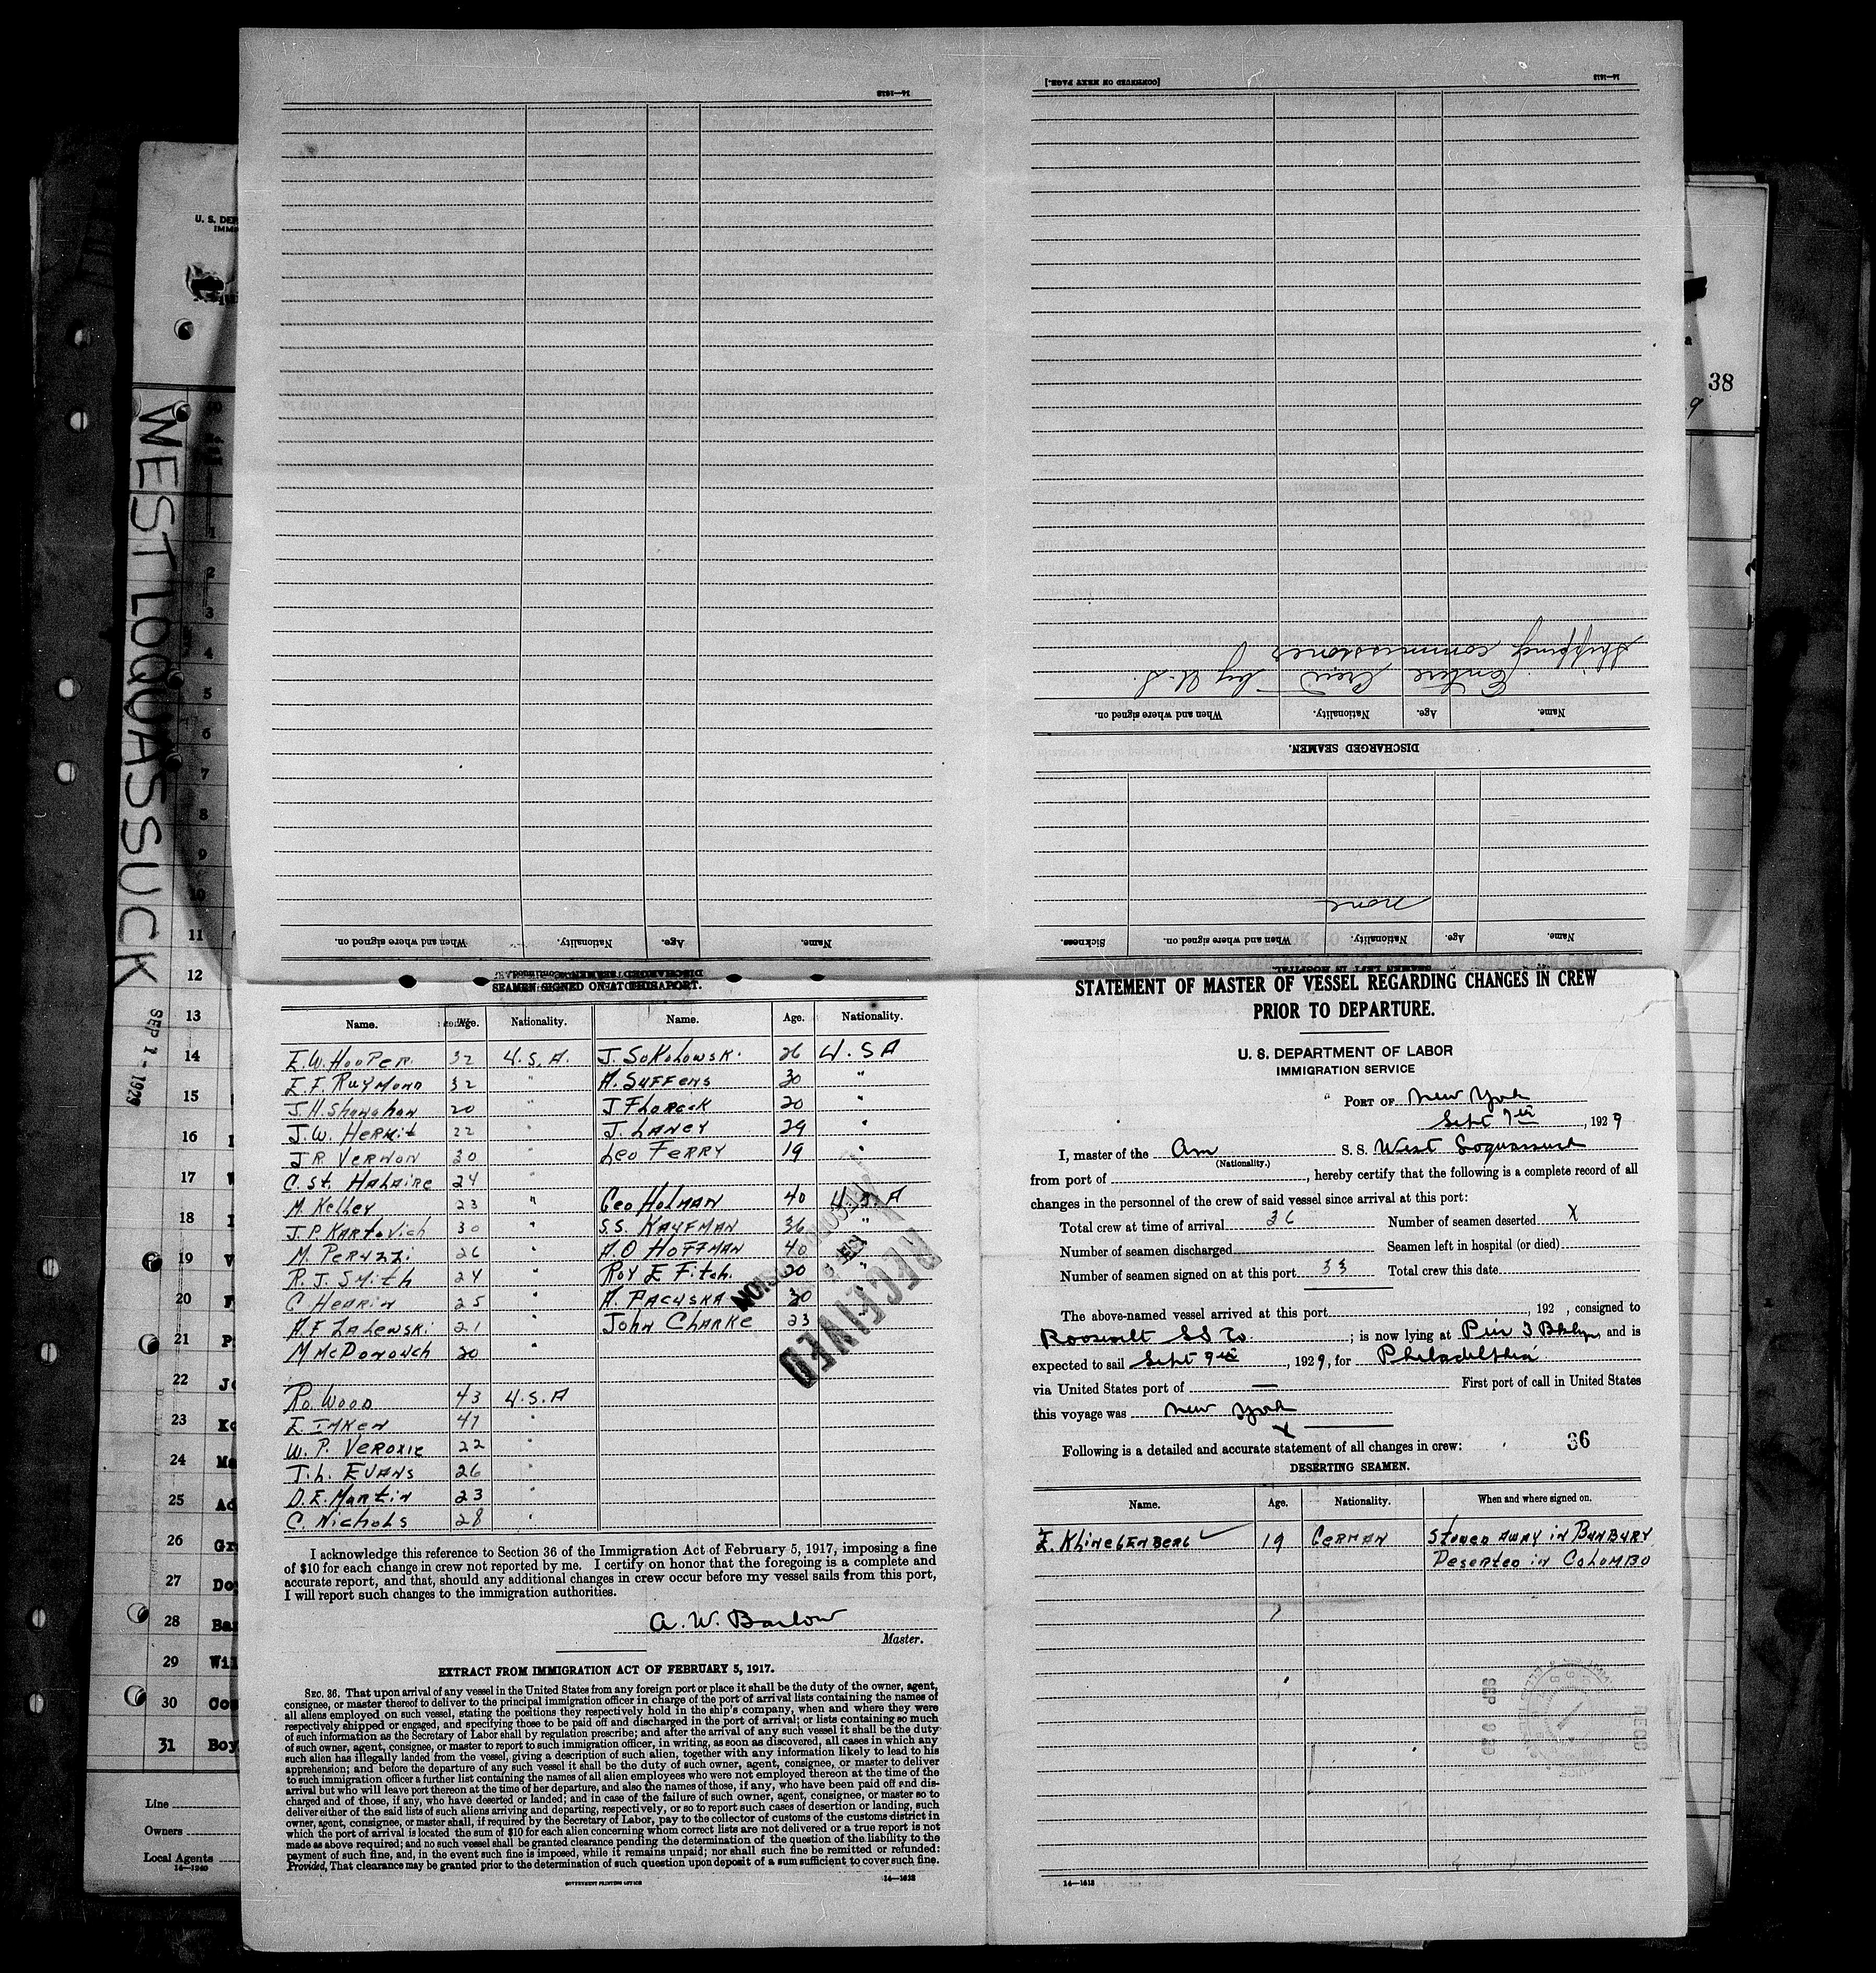 WEST LOQUASSUCK
SEP 1 - 1929
U. S. DEP
IMMI
38
1
2
3
4
5
6
7
8
9
10
11
12
13
14
15
16
17
18
19
20
21
22
23
24
25
26
27
28
29
30
31
Ko
Ma
Ad
Gr
Do
Bar
Wil
Cos
Boy
Line
Owners
Local Agents
14—1240
14—1618
[CONTINUED ON NEXT PAGE.]
14—1618
Shipping commissioner
Entire Crew by U.S.
Name. Age. Nationality. When and where signed on.
DISCHARGED SEAMEN.
none
Name. Age. Nationality. When and where signed on. Sickness.
SEAMEN LEFT IN HOSPITAL.
Name. Age. Nationality. When and where signed on.
DISCHARGED SEAMEN—Continued.
SEAMEN SIGNED ON AT THIS PORT.
Name. Age. Nationality. Name. Age. Nationality.
E.W. HOOPER. 32 U.S.A. J. SOKOLOWSKI 26 U.S.A
E.F. RAYMOND 32 " A. SUFFENS 30 "
J.H. Shanahan 20 " J FLORCEK 20 "
J.W. HERMIT 22 " J. LANEY 29 "
J R VERNON 30 " LEO FERRY 19 "
C. St. HALAIRE 24 "
M. Kelley 23 " GEO HOLMAN 40 U.S.A
J.P. KARTOVICH 30 " S.S. KAUFMAN 36 "
M. PERUZZI 26 " A.O HOFFMAN 40 "
R.J. SMITH 24 " ROY E FITCH. 20 "
C HEARIN 25 " A. PACUSKA 30
A.F. ZALEWSKI 21 " JOHN CLARKE 23
M McDONOUGH 20 "
RO. WOOD 43 U.S.A
E. IMKEN 47 "
W. P. VEROXIE 22 "
J.L. EVANS 26 "
D.E. MARTIN 23 "
C. NICHOLS 28 "
RECEIVED
I acknowledge this reference to Section 36 of the Immigration Act of February 5, 1917, imposing a fine
of $10 for each change in crew not reported by me. I certify on honor that the foregoing is a complete and
accurate report, and that, should any additional changes in crew occur before my vessel sails from this port,
I will report such changes to the immigration authorities.
A. W. Barlow
Master.
EXTRACT FROM IMMIGRATION ACT OF FEBRUARY 5, 1917.
SEC. 36. That upon arrival of any vessel in the United States from any foreign port or place it shall be the duty of the owner, agent,
consignee, or master thereof to deliver to the principal immigration officer in charge of the port of arrival lists containing the names of
all aliens employed on such vessel, stating the positions they respectively hold in the ship's company, when and where they were
respectively shipped or engaged, and specifying those to be paid off and discharged in the port of arrival; or lists containing so much
of such information as the Secretary of Labor shall by regulation prescribe; and after the arrival of any such vessel it shall be the duty
of such owner, agent, consignee, or master to report to such immigration officer, in writing, as soon as discovered, all cases in which any
such alien has illegally landed from the vessel, giving a description of such alien, together with any information likely to lead to his
apprehension; and before the departure of any such vessel it shall be the duty of such owner, agent, consignee, or master to deliver
to such immigration officer a further list containing the names of all alien employees who were not employed thereon at the time of the
arrival but who will leave port thereon at the time of her departure, and also the names of those, if any, who have been paid off and dis-
charged and of those, if any, who have deserted or landed; and in case of the failure of such owner, agent, consignee, or master so to
deliver either of the said lists of such aliens arriving and departing, respectively, or so to report such cases of desertion or landing, such
owner, agent, consignee, or master shall, if required by the Secretary of Labor, pay to the collector of customs of the customs district in
which the port of arrival is located the sum of $10 for each alien concerning whom correct lists are not delivered or a true report is not
made as above required; and no such vessel shall be granted clearance pending the determination of the question of the liability to the
payment of such fine, and, in the event such fine is imposed, while it remains unpaid; nor shall such fine be remitted or refunded:
Provided, That clearance may be granted prior to the determination of such question upon deposit of a sum sufficient to cover such fine.
GOVERNMENT PRINTING OFFICE 14—1618
STATEMENT OF MASTER OF VESSEL REGARDING CHANGES IN CREW
PRIOR TO DEPARTURE.
U. S. DEPARTMENT OF LABOR
IMMIGRATION SERVICE
PORT OF New York
Sept 9th, 1929
I, master of the Am S. S. West Loquassuck
(Nationality.)
from port of , hereby certify that the following is a complete record of all
changes in the personnel of the crew of said vessel since arrival at this port:
Total crew at time of arrival 36 Number of seamen deserted X
Number of seamen discharged Seamen left in hospital (or died)
Number of seamen signed on at this port 33 Total crew this date
The above-named vessel arrived at this port , 192 , consigned to
Roosevelt SS Co ; is now lying at Pier 3 Bklyn, and is
expected to sail Sept 9th, 1929, for Philadelphia
via United States port of — First port of call in United States
this voyage was New York
Following is a detailed and accurate statement of all changes in crew: 36
DESERTING SEAMEN.
Name. Age. Nationality. When and where signed on.
E. KLINGENBERG 19 GERMAN STOWED AWAY IN BUNBURY
DESERTED IN COLOMBO
SEP 9
14—1618